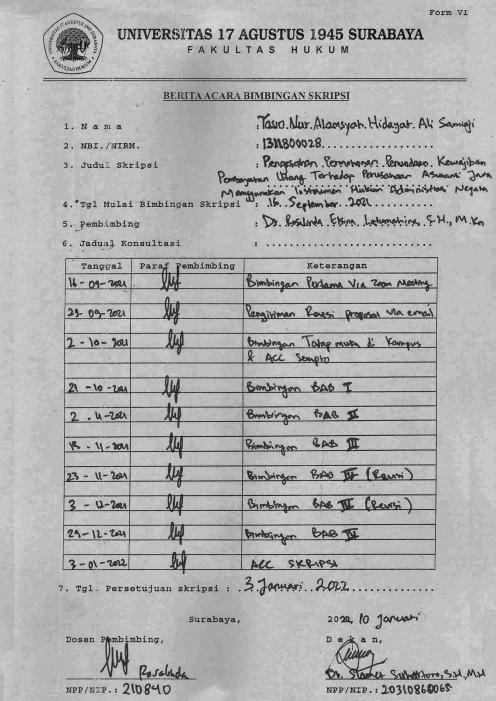 Form VI
UNIVERSITAS 17 AGUSTUS 1945 SURABAYA
FAKULTAS HUKUM
BERITA ACARA BIMBINGAN SKRIPSI
1. Nama : Nur Alamsyah Hidayat Ali
2. NBI./NIRM. : 1311800028
3. Judul Skripsi : Permohonan Penundaan Kewajiban
Pembayaran Utang Terhadap Perusahaan Asuransi Jiwa
Menggunakan Instrumen Hukum Administrasi Negara
4. Tgl Mulai Bimbingan Skripsi : 16 September 2021
5. Pembimbing : Dr. Rosalinda Elsina Latumahina, S.H., M.Kn
6. Jadual Konsultasi :
Tanggal Paraf Pembimbing Keterangan
16 - 09 - 2021 Bimbingan Pertama Via Zoom Meeting
29 09 - 2021 Pengiriman Revisi proposal via email
2 - 10 - 2021 Bimbingan Tatap muka di Kampus
& ACC Sempro
21 - 10 - 2021 Bimbingan BAB I
2 - 11 - 2021 Bimbingan BAB II
- 11 - 2021 Bimbingan BAB III
23 - 11 - 2021 Bimbingan BAB (Revisi)
3 - 12 - 2021 Bimbingan BAB (Revisi)
29 - 12 - 2021 Bimbingan BAB
3 - 01 - 2022 ACC SKRIPSI
7. Tgl. Persetujuan skripsi : 3 Januari 2022
Surabaya, 2022, 10 Januari
Dosen Pembimbing, Dekan,
Rosalinda Dr. Slamet Suhartono, S.H., M.H
NPP/NIP.: 210840 NPP/NIP.: 20310860065